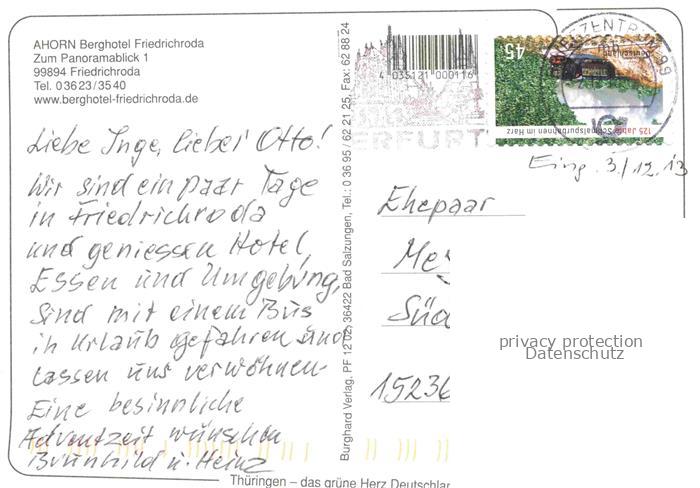 AHORN Berghotel Friedrichroda
Zum Panoramablick 1
99894 Friedrichroda
Tel. 03623/3540
www.berghotel-friedrichroda.de
Liebe Inge, lieber Otto!
Wir sind ein paar Tage
in Friedrichroda
und geniessen Hotel,
Essen und Umgebung,
Sind mit einem Bus
in Urlaub gefahren und
lassen uns verwöhnen
Eine besinnliche
Adventzeit wünschen
Brunhild u. Heinz
Burghard Verlag, PF 12 02, 36422 Bad Salzungen, Tel.: 0 36 95 / 62 21 25, Fax: 62 88 24
4 035121 000116
ERFURT
45
Deutschland
125 Jahre Schmalspurbahnen im Harz
BRIEFZENTRUM 99
Eing. 3./12.13
Ehepaar
Me
Süd
15236
privacy protection
Datenschutz
Thüringen – das grüne Herz Deutschlan